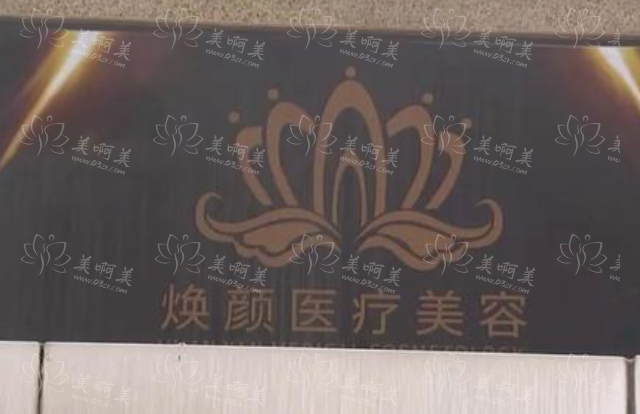 焕颜医疗美容
美啊美
www.03zt.com